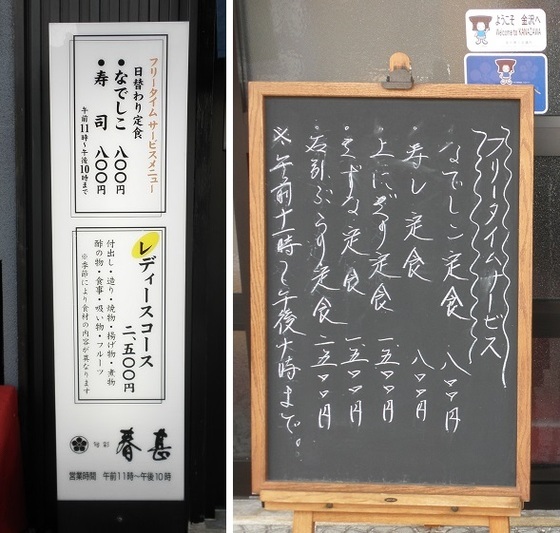 フリータイム サービスメニュー
日替わり定食
●なでしこ 八〇〇円
●寿司 八〇〇円
午前11時〜午後10時まで
レディースコース
二、五〇〇円
付出し・造り・焼物・揚げ物・煮物
酢の物・食事・吸い物・フルーツ
※季節により食材の内容が異なります
旬彩 春甚
営業時間 午前11時〜午後10時
ようこそ 金沢へ
Welcome to KANAZAWA
フリータイムサービス
・なでしこ定食 八〇〇円
・寿し定食 八〇〇円
・上にぎり定食 一、五〇〇円
・きずな定食 一、五〇〇円
・石引ぶらり定食 一、五〇〇円
※午前十一時〜午後十時まで。